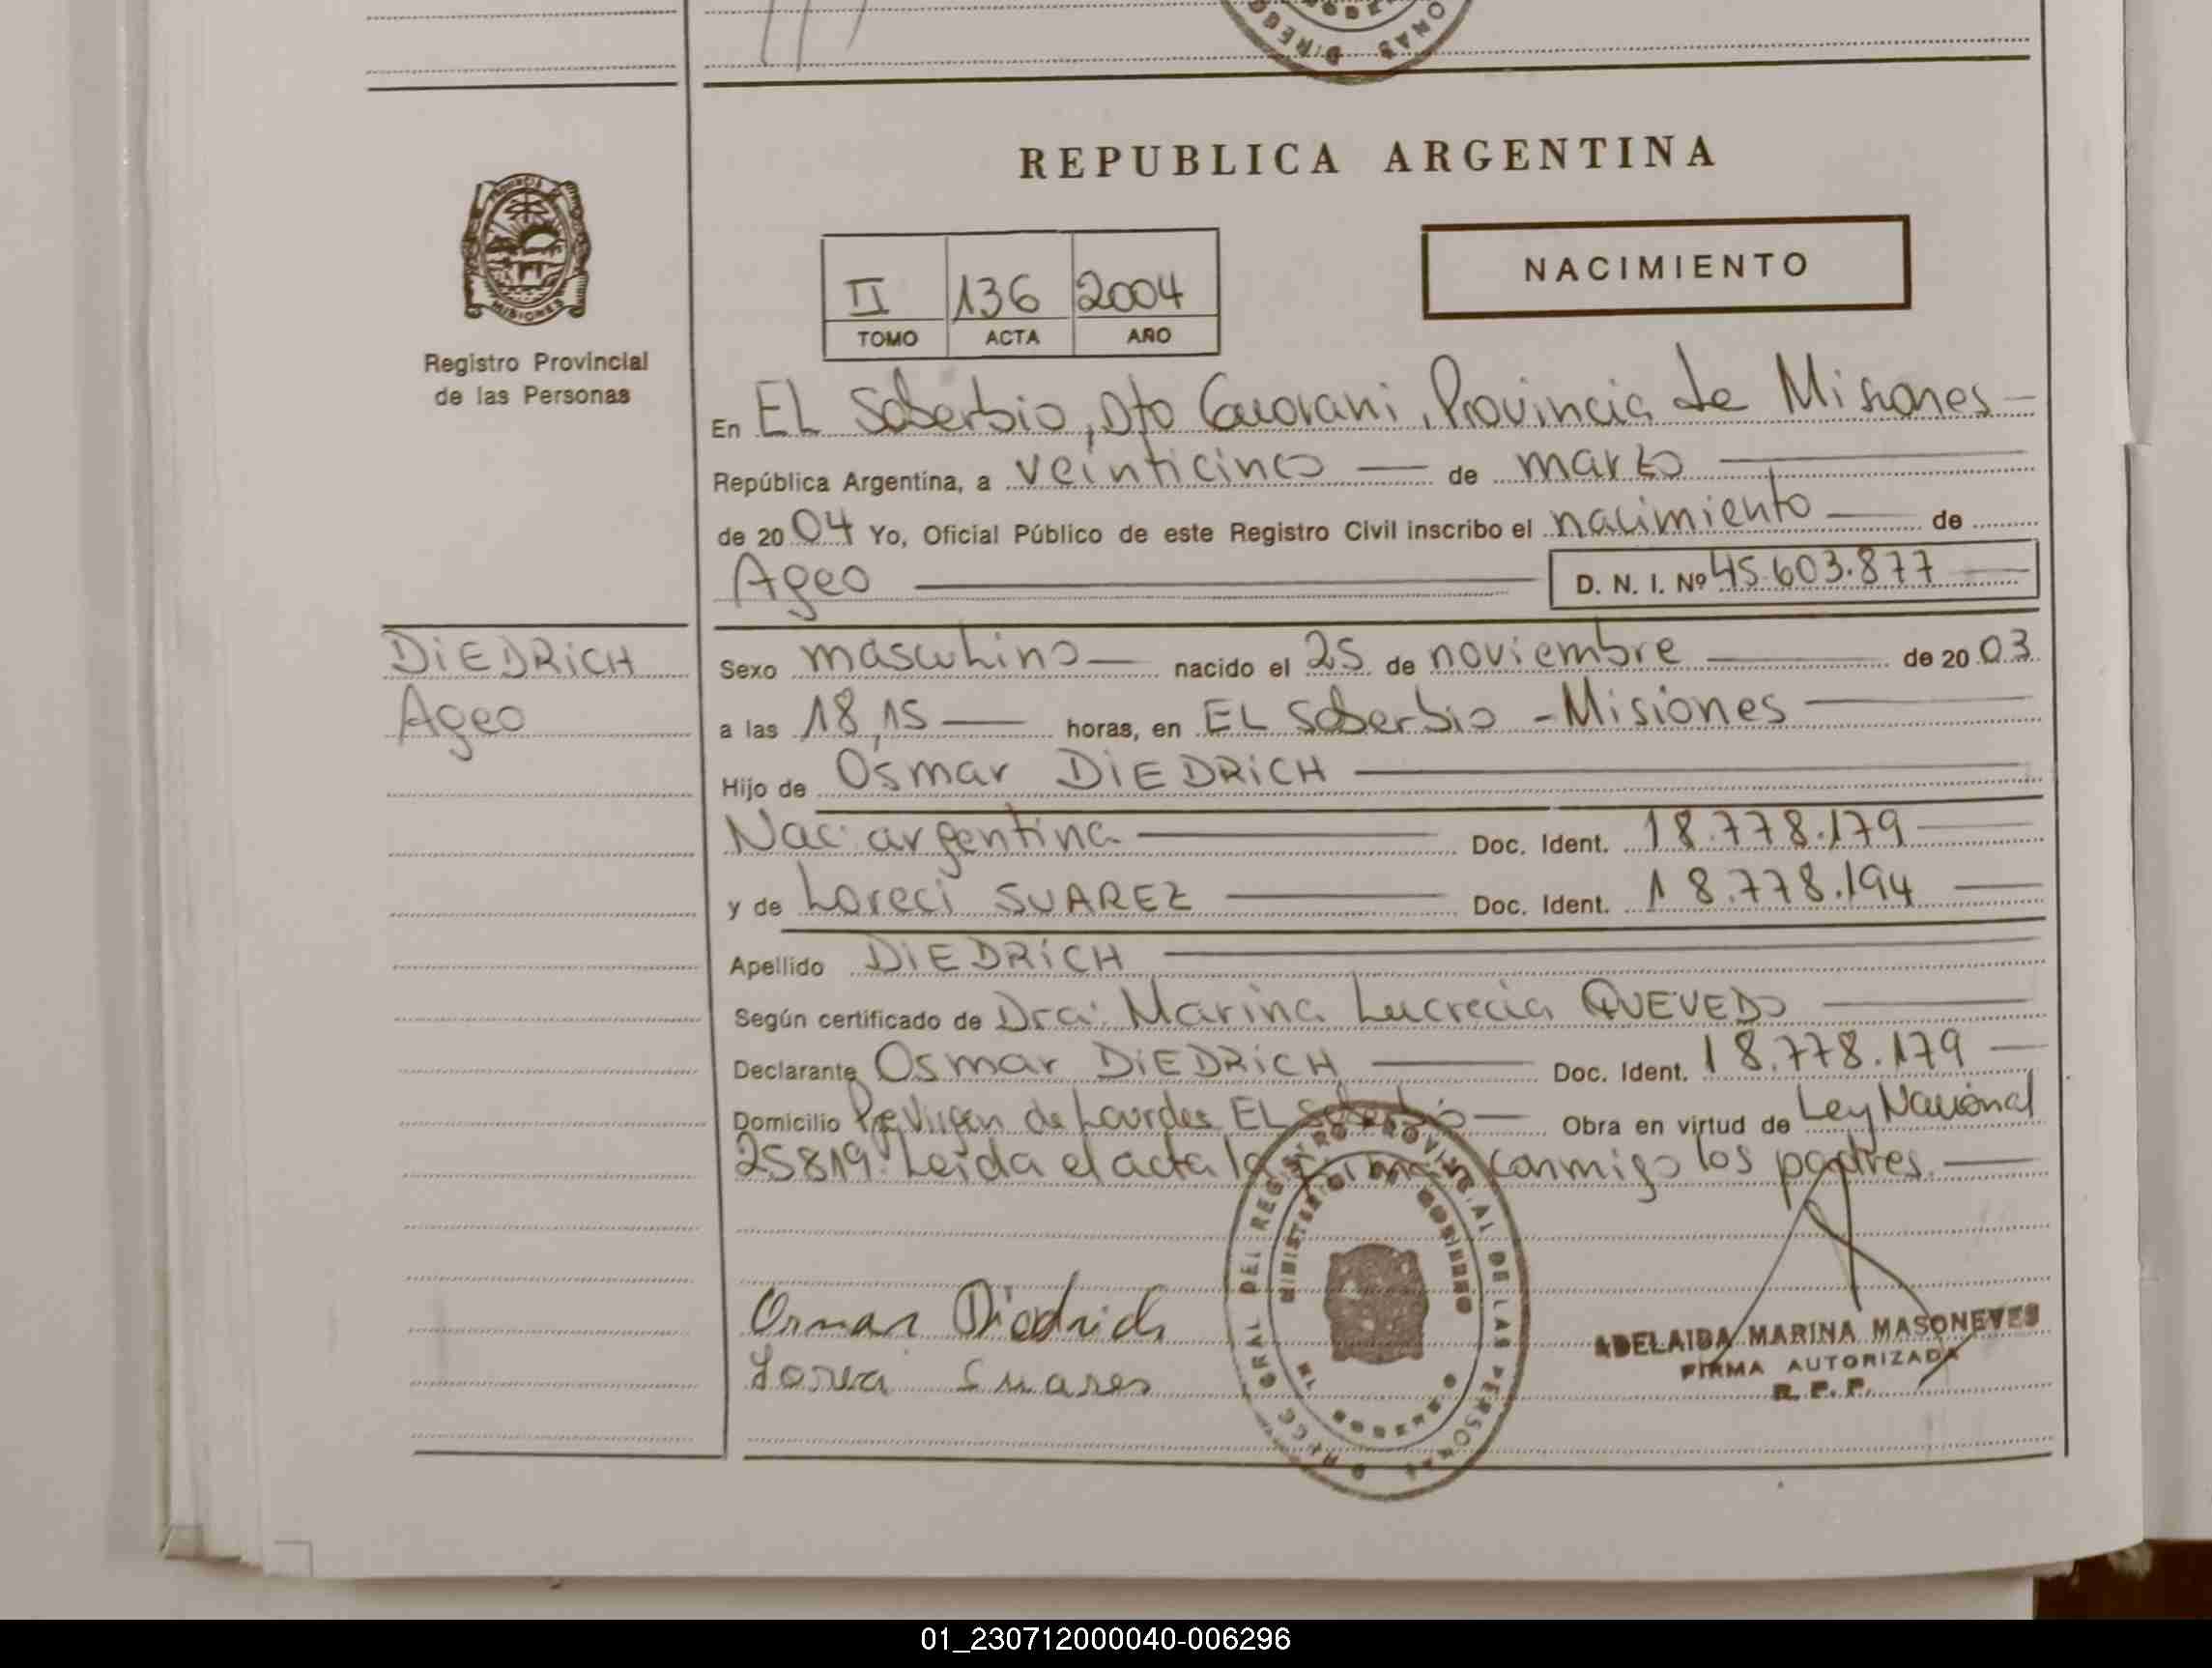 REPUBLICA ARGENTINA
NACIMIENTO
II 136 2004
TOMO ACTA AÑO
MISIONES
Registro Provincial
de las Personas
En EL Soberbio, Dto Guarani, Provincia de Misiones
República Argentina, a veinticinco de marzo
de 2004 Yo, Oficial Público de este Registro Civil inscribo el nacimiento de
Ageo D. N. I. Nº 45.603.877
DIEDRICH
Ageo
Sexo masculino nacido el 25 de noviembre de 2003
a las 18,15 horas, en EL Soberbio - Misiones
Hijo de Osmar DIEDRICH
Nac. argentina Doc. Ident. 18.778.179
y de Loreci SUAREZ Doc. Ident. 18.778.194
Apellido DIEDRICH
Según certificado de Dra. Marina Lucrecia QUEVEDO
Declarante Osmar DIEDRICH Doc. Ident. 18.778.179
Domicilio Virgen de Lourdes EL Soberbio Obra en virtud de Ley Nacional
25819. Leida el acta la firman conmigo los padres.
Osmar Diedrich
Loreci Suares
ADELAIDA MARINA MASONEVES
FIRMA AUTORIZADA
R. P. P.
GRAL DEL REGISTRO PROVINCIAL DE LAS PERSONAS
MINISTERIO DE GOBIERNO
01_230712000040-006296